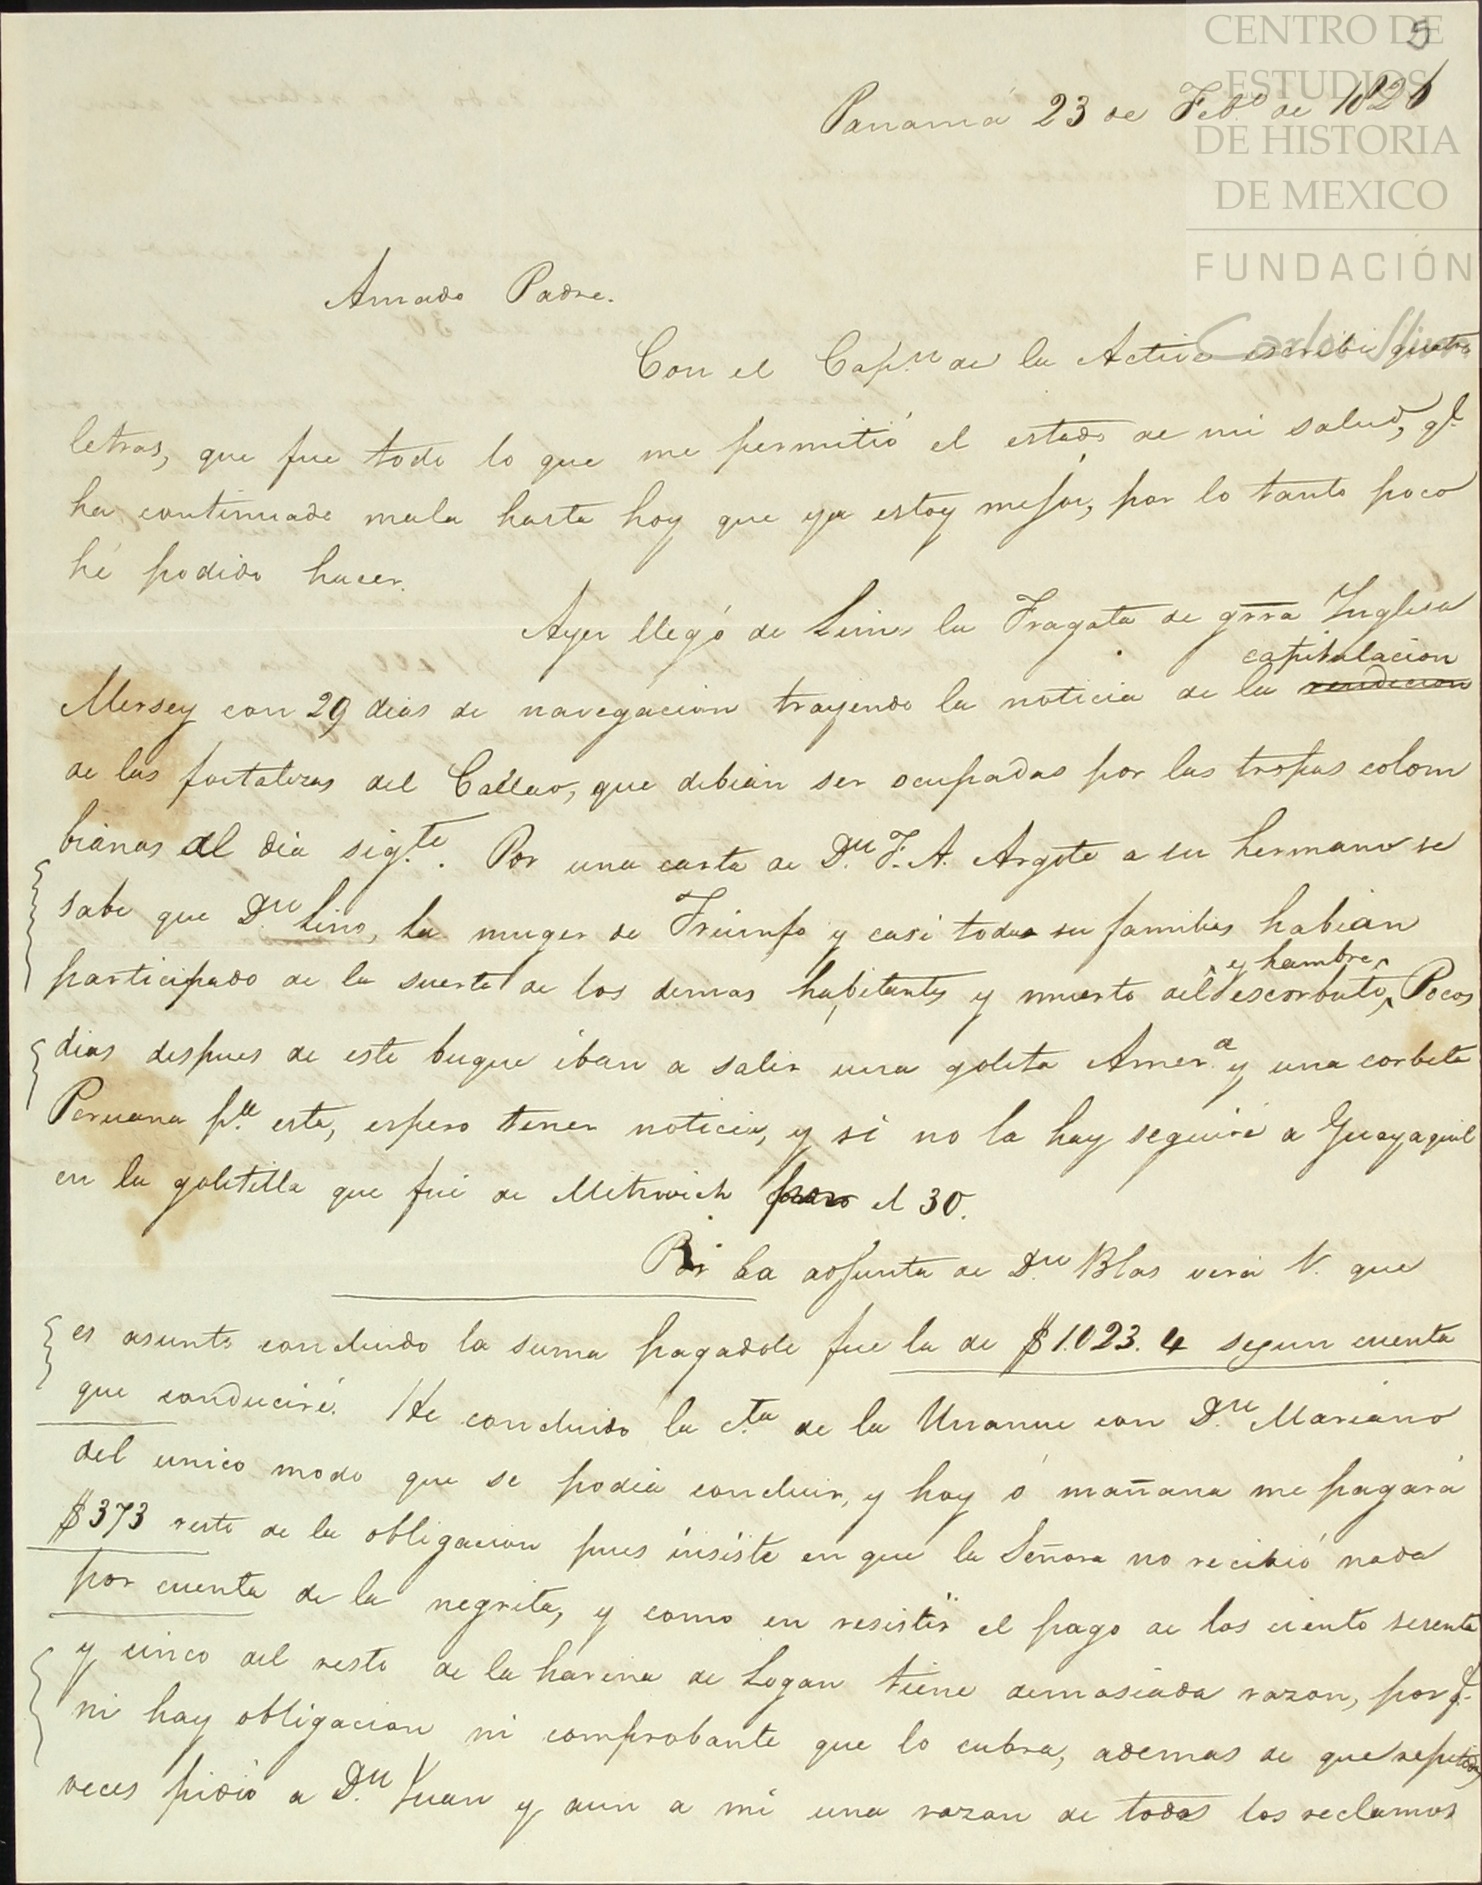 CENTRO DE
ESTUDIOS
DE HISTORIA
DE MEXICO
FUNDACIÓN
Carlos Slim
5
Panamá 23 de Feb.o de 1826
Amado Padre.
Con el Cap.n de la Activa escribi quatro
letras, que fue todo lo que me permitió el estado de mi salud, q.e
ha continuado mala hasta hoy que ya estoy mejor, por lo tanto poco
hé podido hacer.
Ayer llegó de Lima la Fragata de grra Inglesa
capitulacion
Mersey con 29 dias de navegacion trayendo la noticia de la rendicion
de las fortalezas del Callao, que debian ser ocupadas por las tropas colom
bianas al dia sig.te. Por una carta de D.n F. A. Argote a su hermano se
sabe que D.n Lino, la muger de Triunfo y casi toda su familia habian
y hambre
participado de la suerte de los demas habitantes y muerto del escorbuto, Pocos
dias despues de este buque iban a salir una goleta Amer.a y una corbeta
Peruana p.a esta, espero tener noticia, y si no la hay seguiré a Guayaquil
en la goletilla que fué de Mitrovich para el 30.
Por la adjunta de D.n Blas verá V. que
es asunto concluido la suma pagadole fue la de $1.023.4 segun cuenta
que conduciré. He concluido la c.ta de la Unanue con D.n Mariano
del unico modo que se podia concluir, y hoy ó mañana me pagará
$373 resto de la obligacion pues insiste en que la Señora no recibió nada
por cuenta de la negrita, y como en resistir el pago de los ciento sesenta
y cinco del resto de la harina de Logan tiene demasiada razon, por q.e
ni hay obligacion ni comprobante que lo cubra, ademas de que repetidas
veces pidió a D.n Juan y aun a mi una razon de todos los reclamos